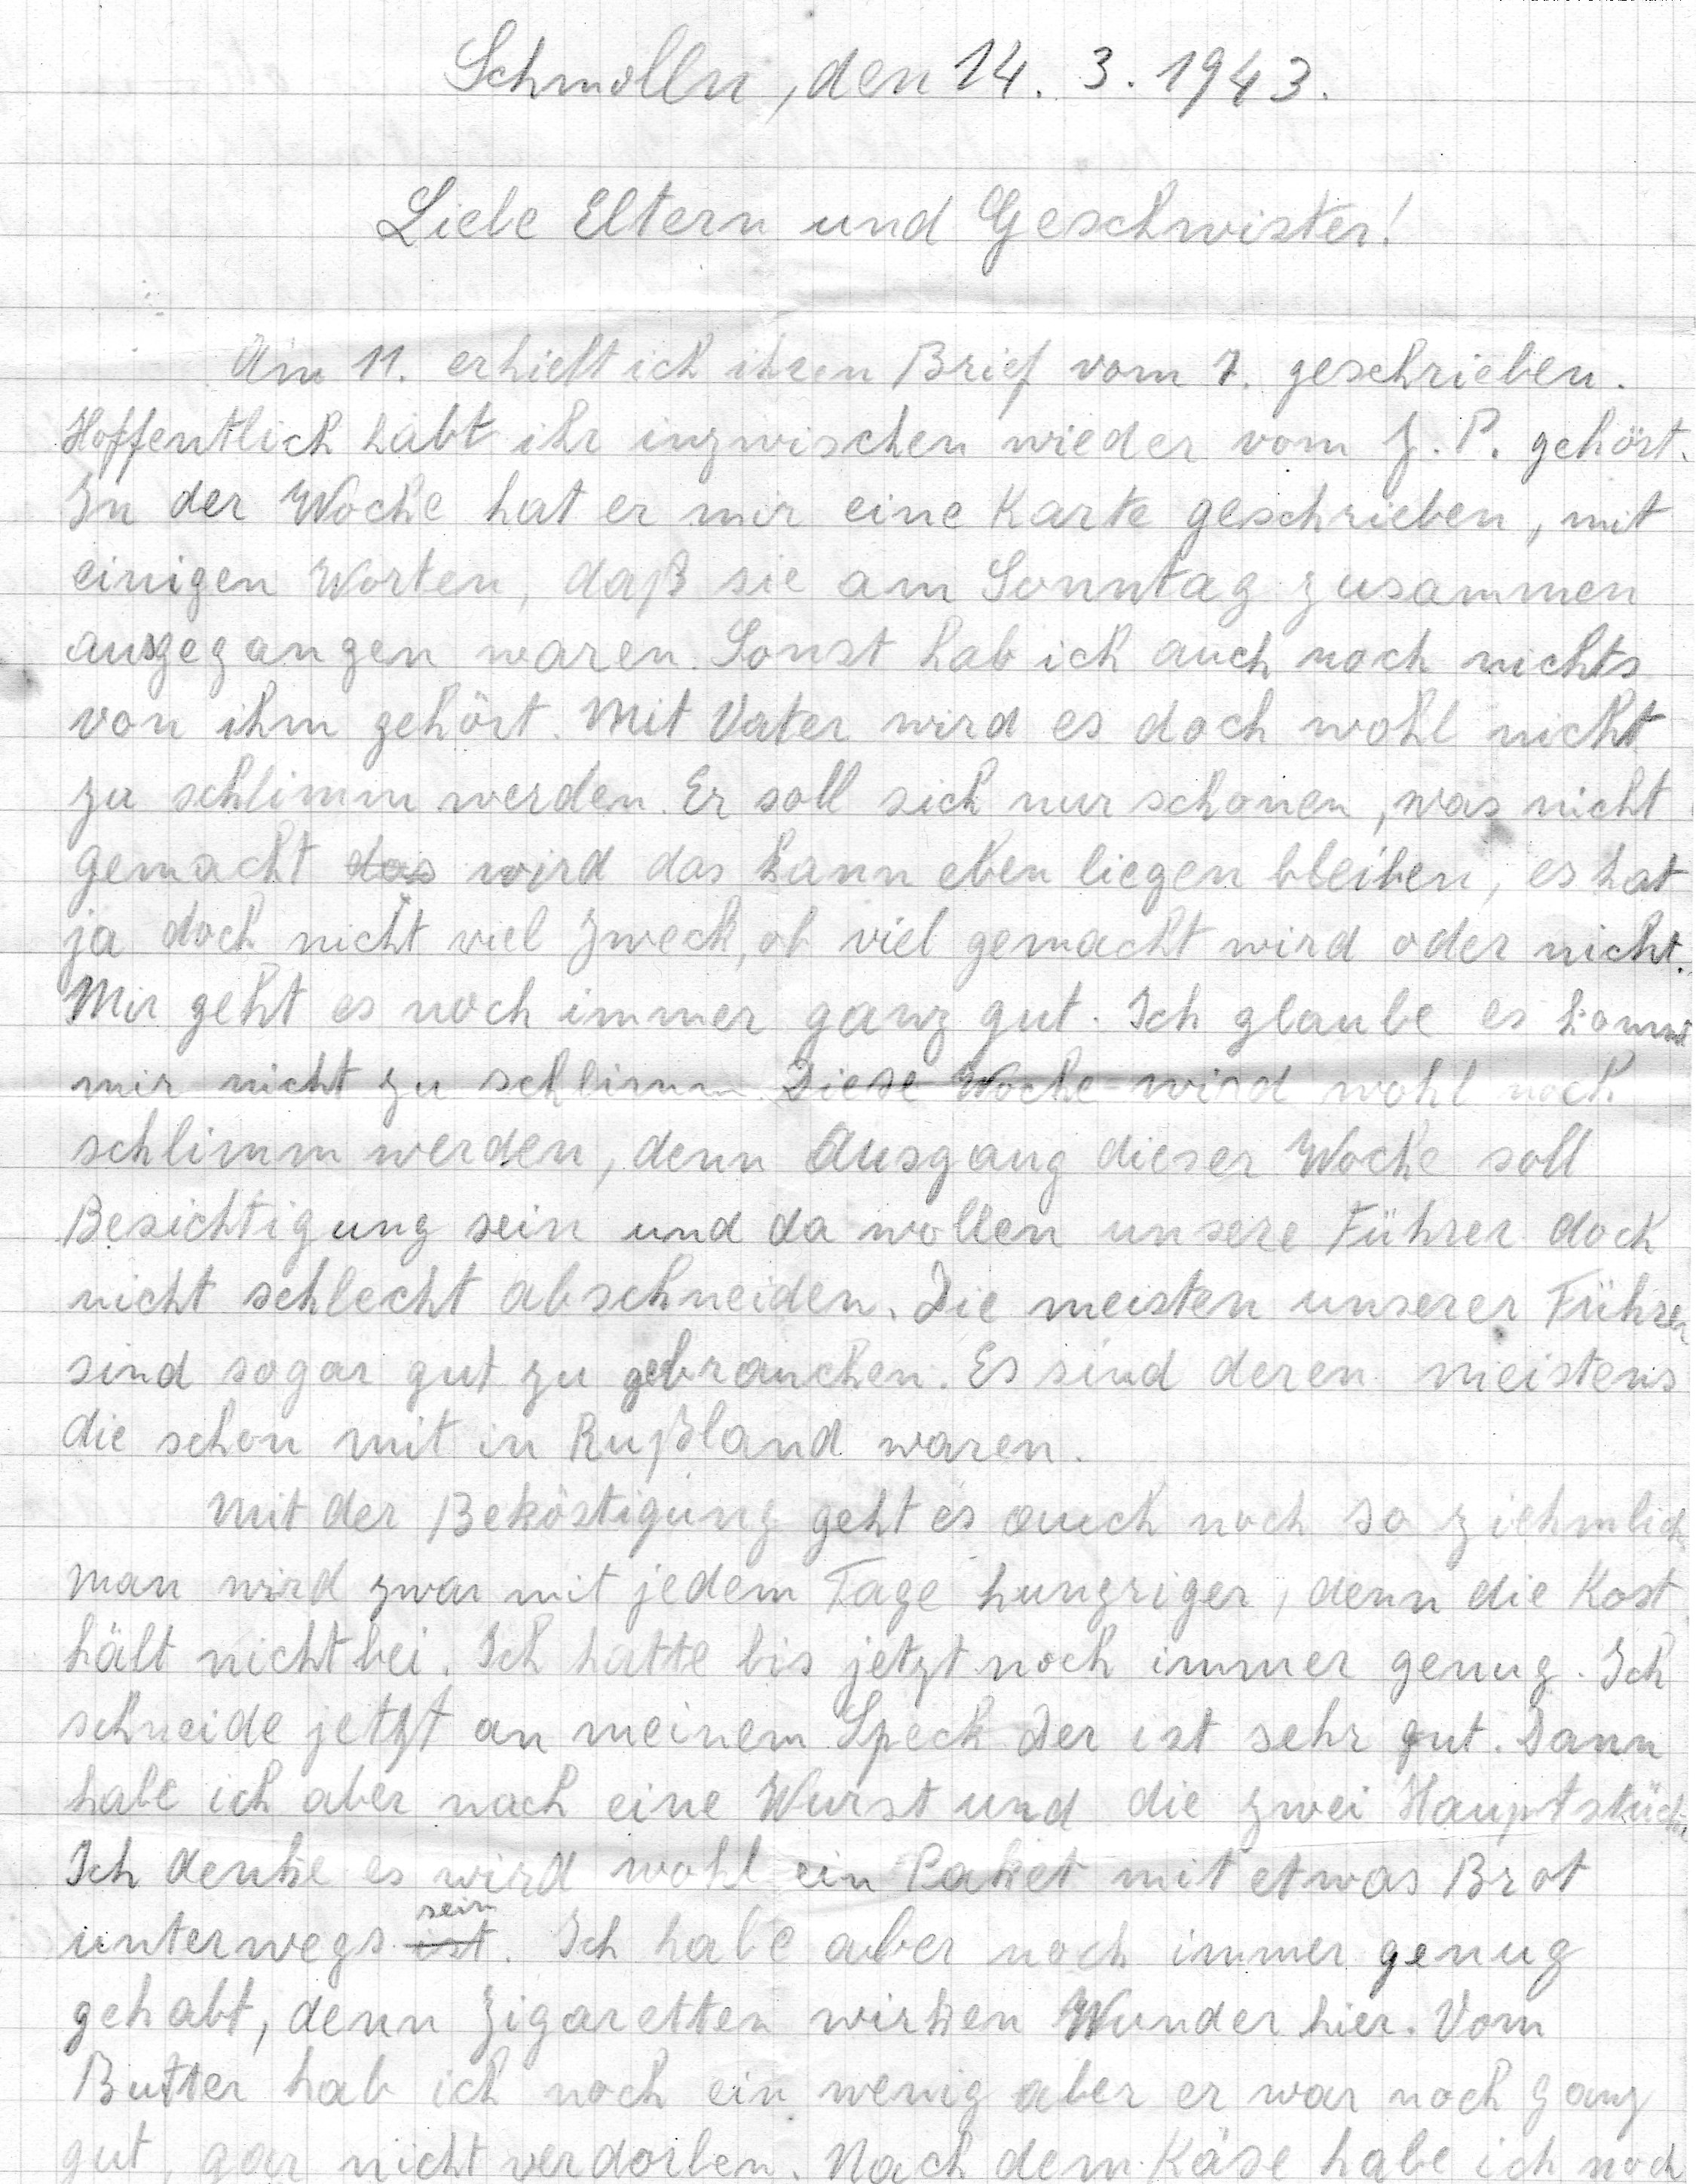 Schmolln, den 14. 3. 1943.
Liebe Eltern und Geschwister!
Am 11. erhielt ich ihren Brief vom 7. geschrieben.
Hoffentlich habt ihr inzwischen wieder vom J. P. gehört.
In der Woche hat er mir eine Karte geschrieben, mit
einigen Worten, daß sie am Sonntag zusammen
ausgegangen waren. Sonst hab ich auch noch nichts
von ihm gehört. Mit Vater wird es doch wohl nicht
zu schlimm werden. Er soll sich nur schonen, was nicht
gemacht das wird das kann eben liegen bleiben, es hat
ja doch nicht viel Zweck, ob viel gemacht wird oder nicht.
Mir geht es noch immer ganz gut. Ich glaube es kommt
mir nicht zu schlimm. Diese Woche wird wohl noch
schlimm werden, denn Ausgang dieser Woche soll
Besichtigung sein und da wollen unsere Führer doch
nicht schlecht abschneiden. Die meisten unserer Führer
sind sogar gut zu gebrauchen. Es sind deren meistens
die schon mit in Rußland waren.
Mit der Beköstigung geht es auch noch so ziehmlich
man wird zwar mit jedem Tage hungriger, denn die Kost
hält nicht bei. Ich hatte bis jetzt noch immer genug. Ich
schneide jetzt an meinem Speck der ist sehr gut. Dann
habe ich aber noch eine Wurst und die zwei
Ich denke es wird wohl ein Paket mit etwas Brot
unterwegs ist sein. Ich habe aber noch immer genug
gehabt, denn Zigaretten wirken Wunder hier. Vom
Butter hab ich noch ein wenig aber er war noch ganz
gut, gar nicht verdorben. Nach dem Käse habe ich noch